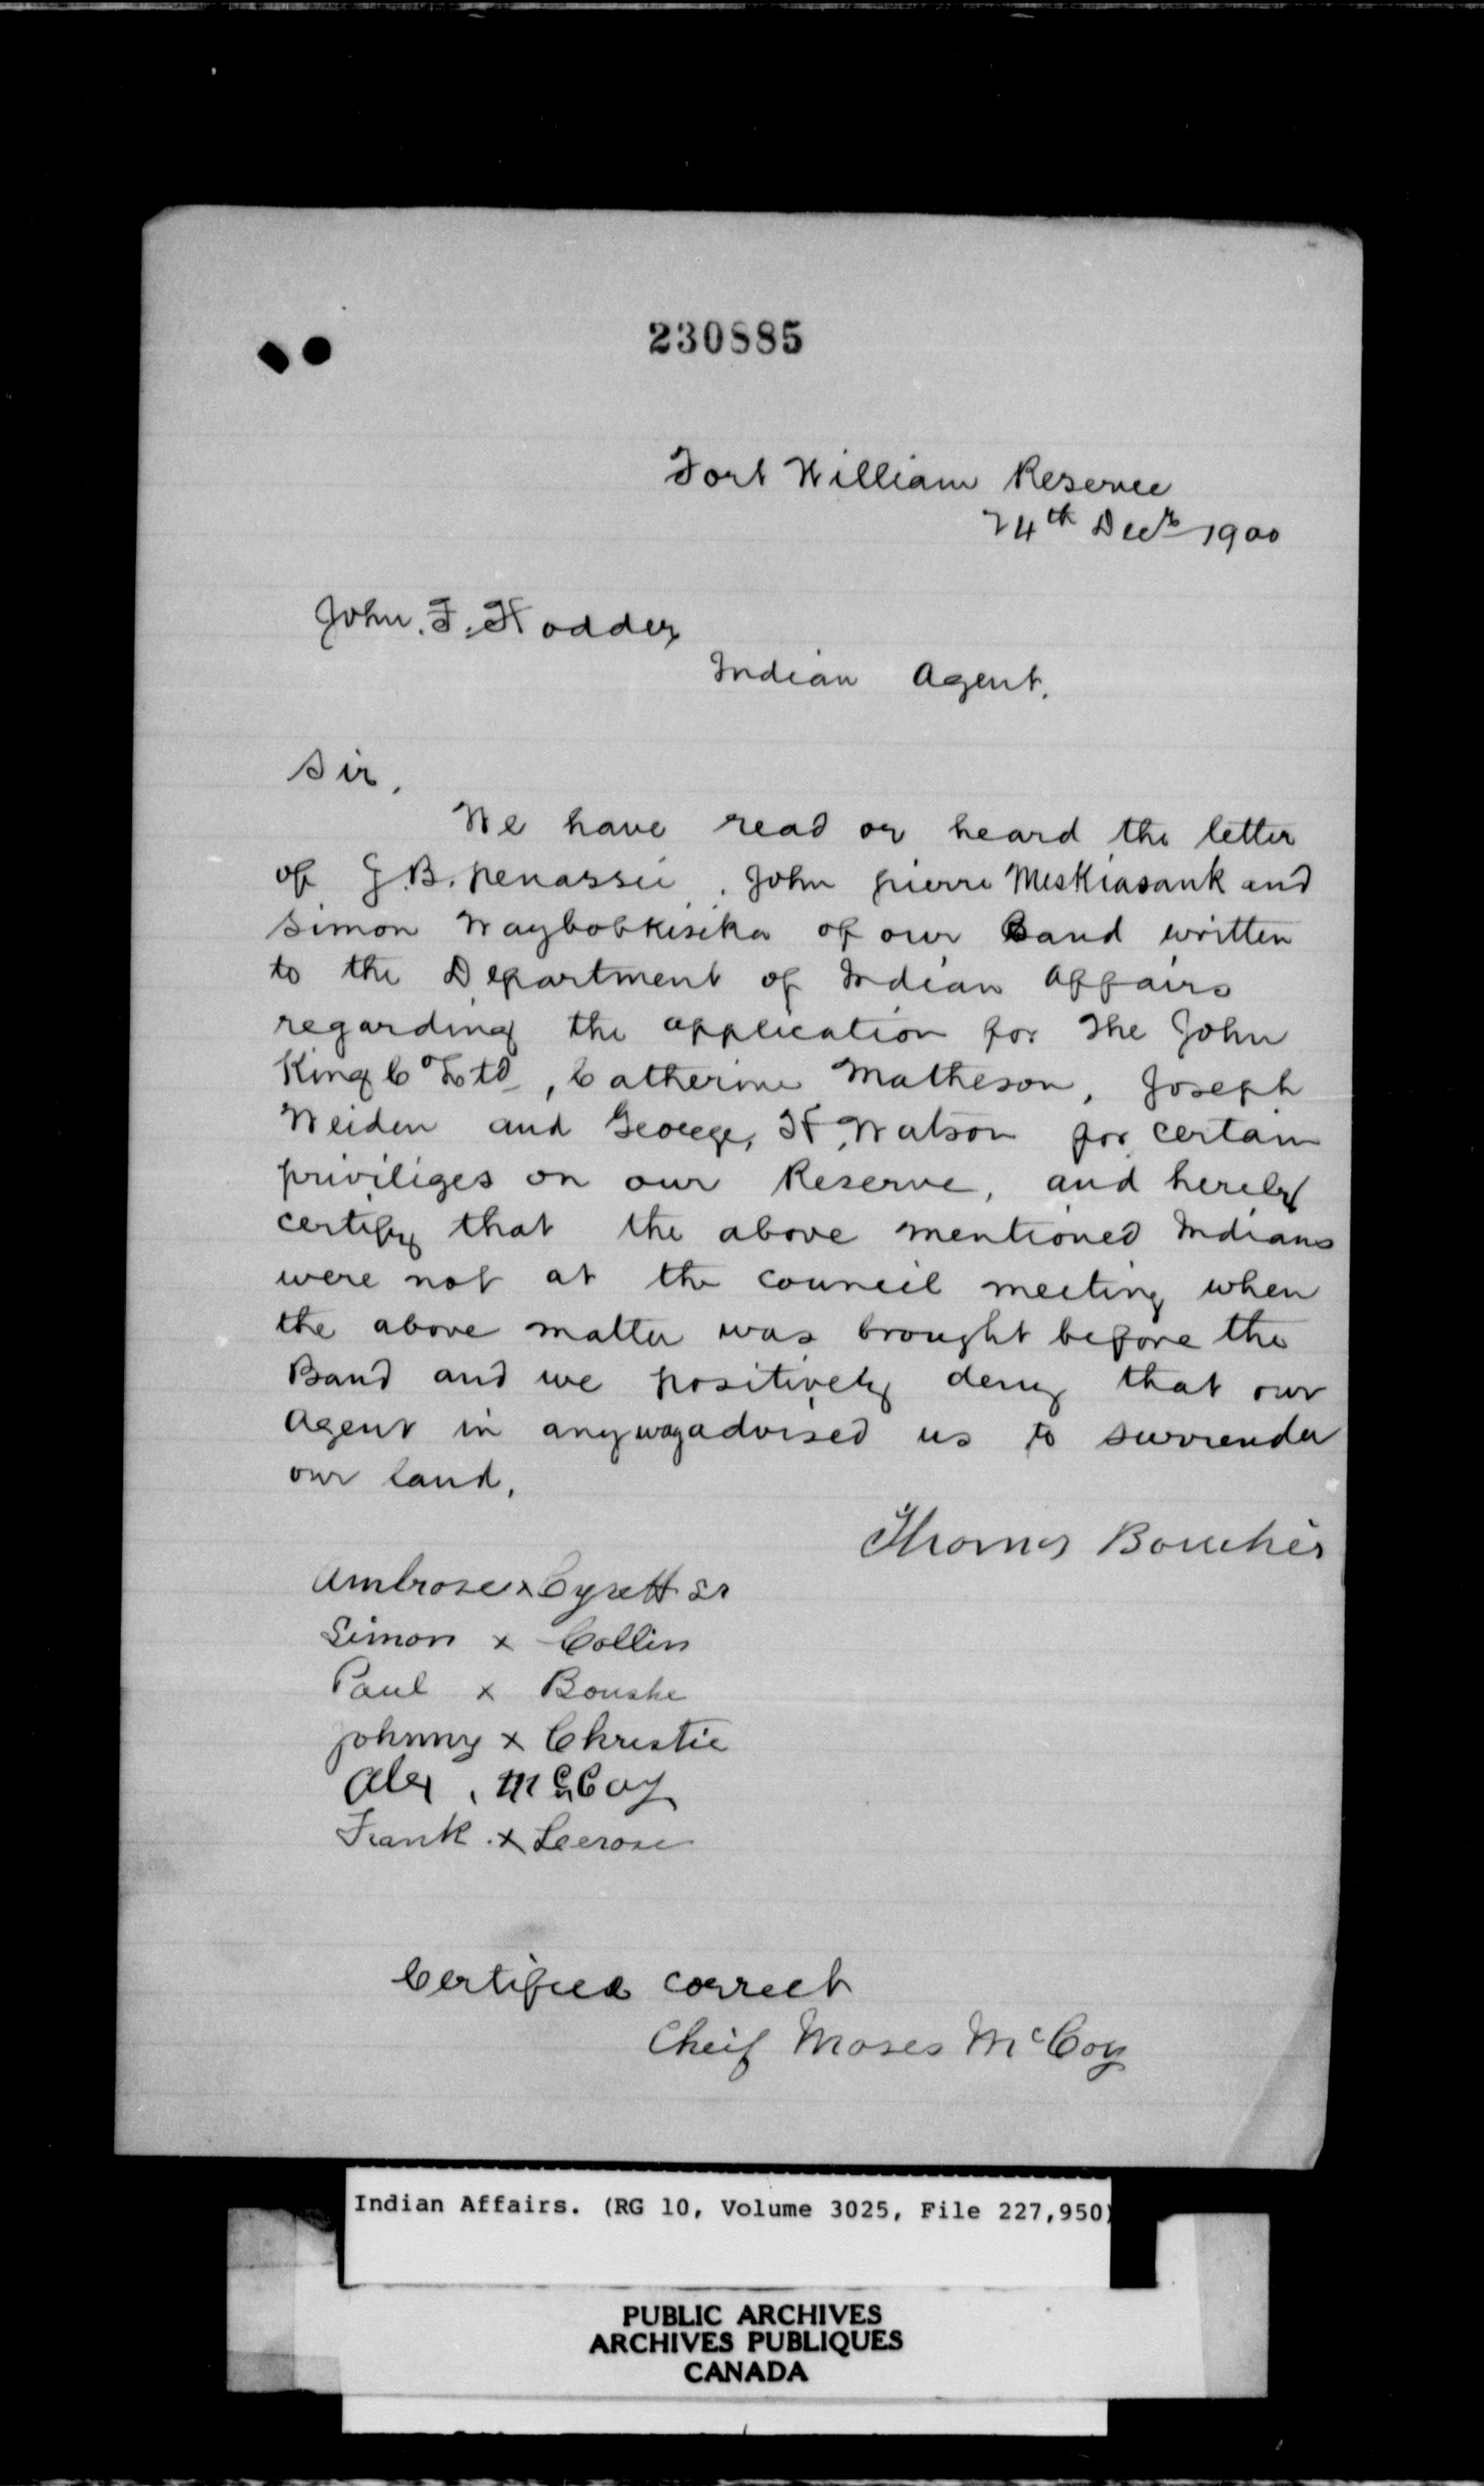 230885
Fort William Reserve
24th Decr 1900
John. F. Hodder
Indian Agent.
Sir,
We have read or heard the letter
of J.B. penassie, John pierre Meskiasank and
Simon Waybobkisika of our Band written
to the Department of Indian Affairs
regarding the application for The John
King Co Ltd, Catherine Matheson, Joseph
Weiden and George, H. Watson for certain
priviliges on our Reserve, and hereby
certify that the above mentioned Indians
were not at the council meeting when
the above matter was brought before the
Band and we positively deny that our
Agent in anyway advised us to surrender
our land.
Thomas Bouchér
Ambrose x Cyrett Sr
Simon x Collin
Paul x Boushe
Johnny x Christie
Alex. McCoy
Frank x Lerose
Certified correct
Cheif Moses McCoy
Indian Affairs. (RG 10, Volume 3025, File 227,950)
PUBLIC ARCHIVES
ARCHIVES PUBLIQUES
CANADA